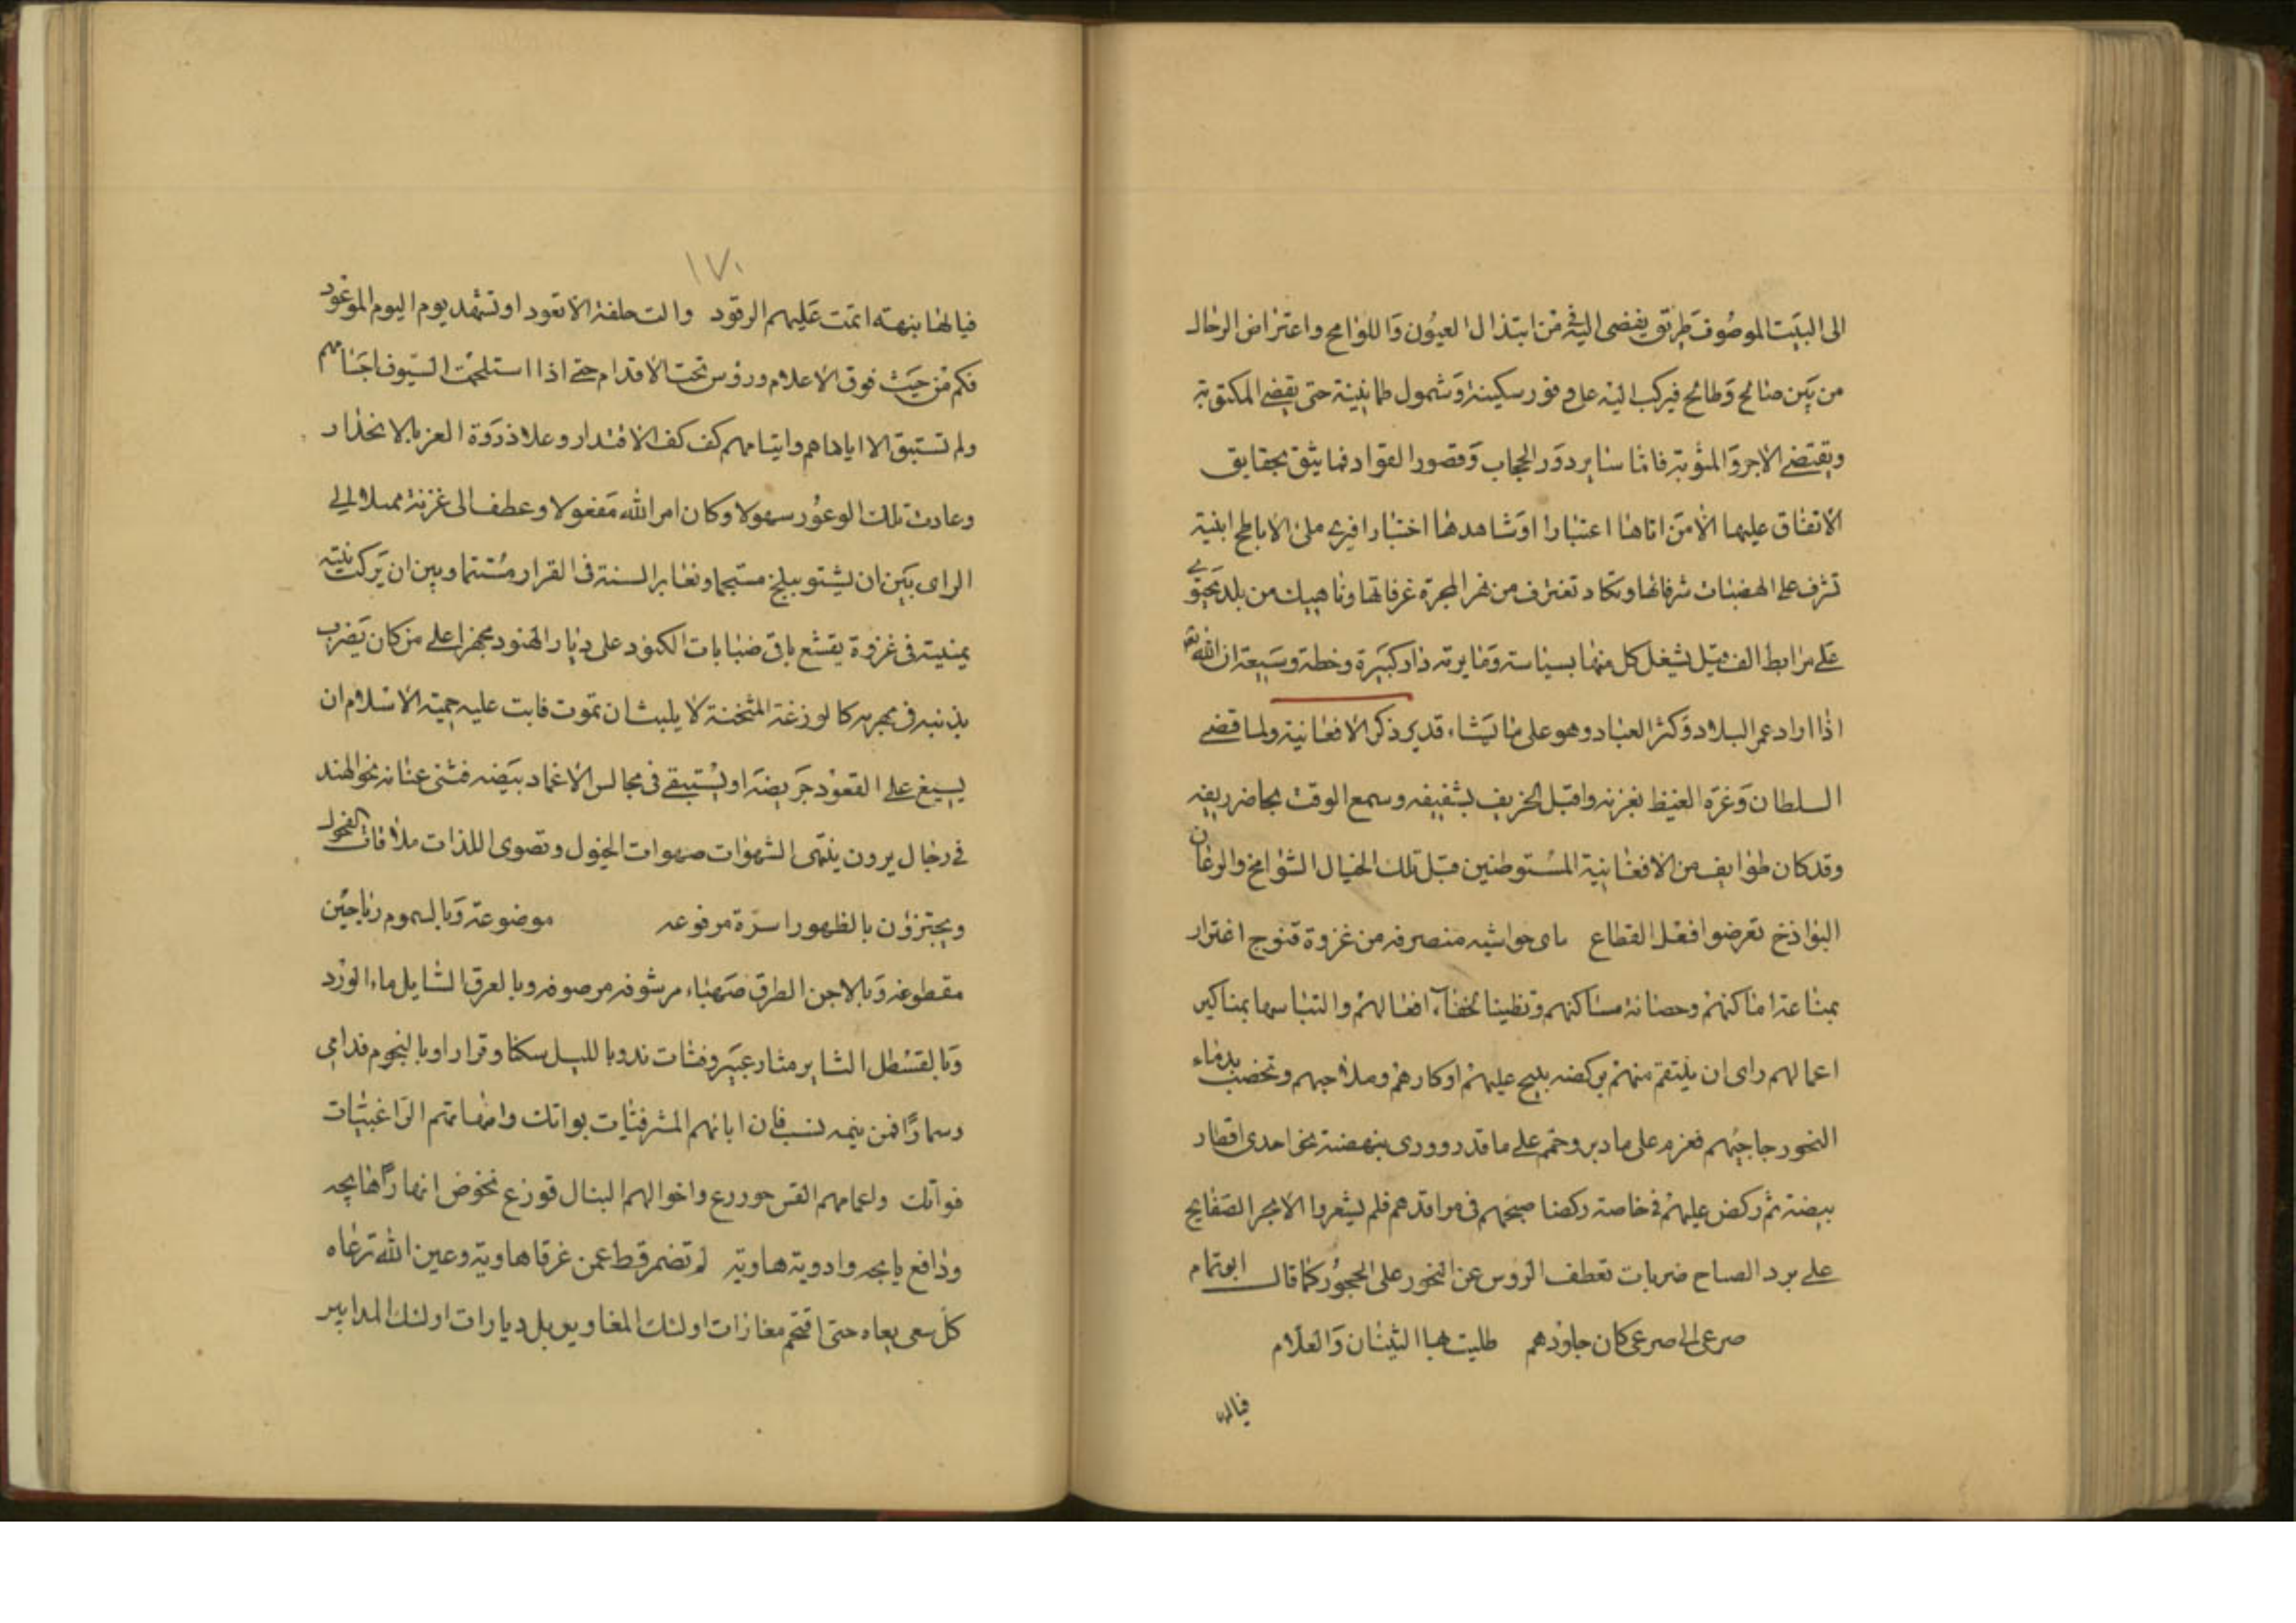 الى البيت الموصوف طريق يفضى اليه فى من ابتذال العيون واللوامح واعتراض الرجال
من بين صالح وطالح فيركب اليه على وفور سكينة وشمول طمانينة حتى يقضى المكتوبة
ويقتضى الاجر والمثوبة فاما سا بر دور الحجاب وقصور القواد فما يثق بحقايق
الاتفاق عليها الا من اتاها اعتبارا او شاهدها اختبارا فيرى ملئ الاباطح ابنية
تشرف على الهضبات شرفاتها وتكاد تغترف من نهر المجرة غرفاتها وناهيك من بلد يحتوى
على مرابط الف فيل يشغل كل منها بسياسته وما يرته دار كبيرة وخطة وسيعة ان الله تع
اذا اراد عمر البلاد وكثر العباد وهو على ما يشاء قدير ذكر الافغانية ولما قضى
السلطان وغرة الغيظ بغزنه واقبل الخريف بشفيفه وسمع الوقت بحاضر ريفه
وقد كان طوايف من الافغانية المستوطنين قبل تلك الجبال الشوامخ والرعان
البواذخ تعرضوا فعل القطاع ماى حواشيه منصرفه من غزوة قنوج اغترار
بمناعة اماكنهم وحصانة مساكنهم وتظنينا لخفاء افعالهم والتباسها بمناكير
اعمالهم راى ان ينتقم منهم بركضه يلج عليهم اوكارهم وملاجيهم وتخضب بدماء
النحور جاجيهم فعزم على ما دبر وحتم على ما قدر وورى بنهضة نحو احدى اقطار
بيضته ثم ركض عليهم فى خاصته ركضا صبحهم فى مراقدهم فلم يشعروا الا بحر الصفايح
على برد الصباح ضربات تعطف الروس عن النحور على الحجور كما قال ابو تمام
صرعى الى صرعى كان جلودهم طليت بها الشيان والعلام
فيالها
١٧٠
فيالها بنهته اتمت عليهم الرقود والت حلفة الا تعود او تشهد يوم اليوم الموعود
فكم من حيث فوق الاعلام وروس تحت الاقدام حتى اذا استلحمت السيوف اجسامهم
ولم تستبق الا اياماهم وايتامهم كف كف الاقتدار وعلا ذروة العز بالانحدار
وعادت تلك الوعور سهولا وكان امر الله مفعولا وعطف الى غزنة ممثلا الى
الراى بين ان يشتو ببلخ مستجما ونغابر السنة فى القرار مستنما وبين ان يركب نيته
يمنيته فى غزوة يقشع باقى ضبابات الكنود على ديار الهنود مجهزا على من كان يضرب
بذنبه فى مجره كالوزغة المثخنة لا يلبث ان تموت فابت عليه حمية الاسلام ان
يسيغ على القعود جريضه او يستبقى فى مجالس الاغماد بيضه فثنى عنانه نحو الهند
فى رجال يرون ينتمى الشهوات صهوات الخيول وتصوى اللذات ملاقات الفحول
ويجتزؤن بالظهور اسرة مرفوعه موضوعة وبالسموم رياحين
مقطوعه وبالاجن الطرق صهباء مرشوفه مرصوفه وبالعرق الشايل ماء الورد
وبالقسطل الثاير مثار عبير وفتات ند وبالليل سكنا وقرارا وبالنجوم فدامى
وسمارا فمن ينمه نسب فان اباءهم المشرفيات بواتك وامهاتهم الزاغبيات
فواتك واعمامهم القس حور رع واخوالهم النبال قوزع نخوض انهارا هايجه
ودافع يا يجه وادوية هاوية لم تضمر قط عمن غرقا هاوية وعين الله ترعاه
كل سعى يعاه حتى اقتحم مغازات اولئك المغاوير بل ديارات اولئك المدابير